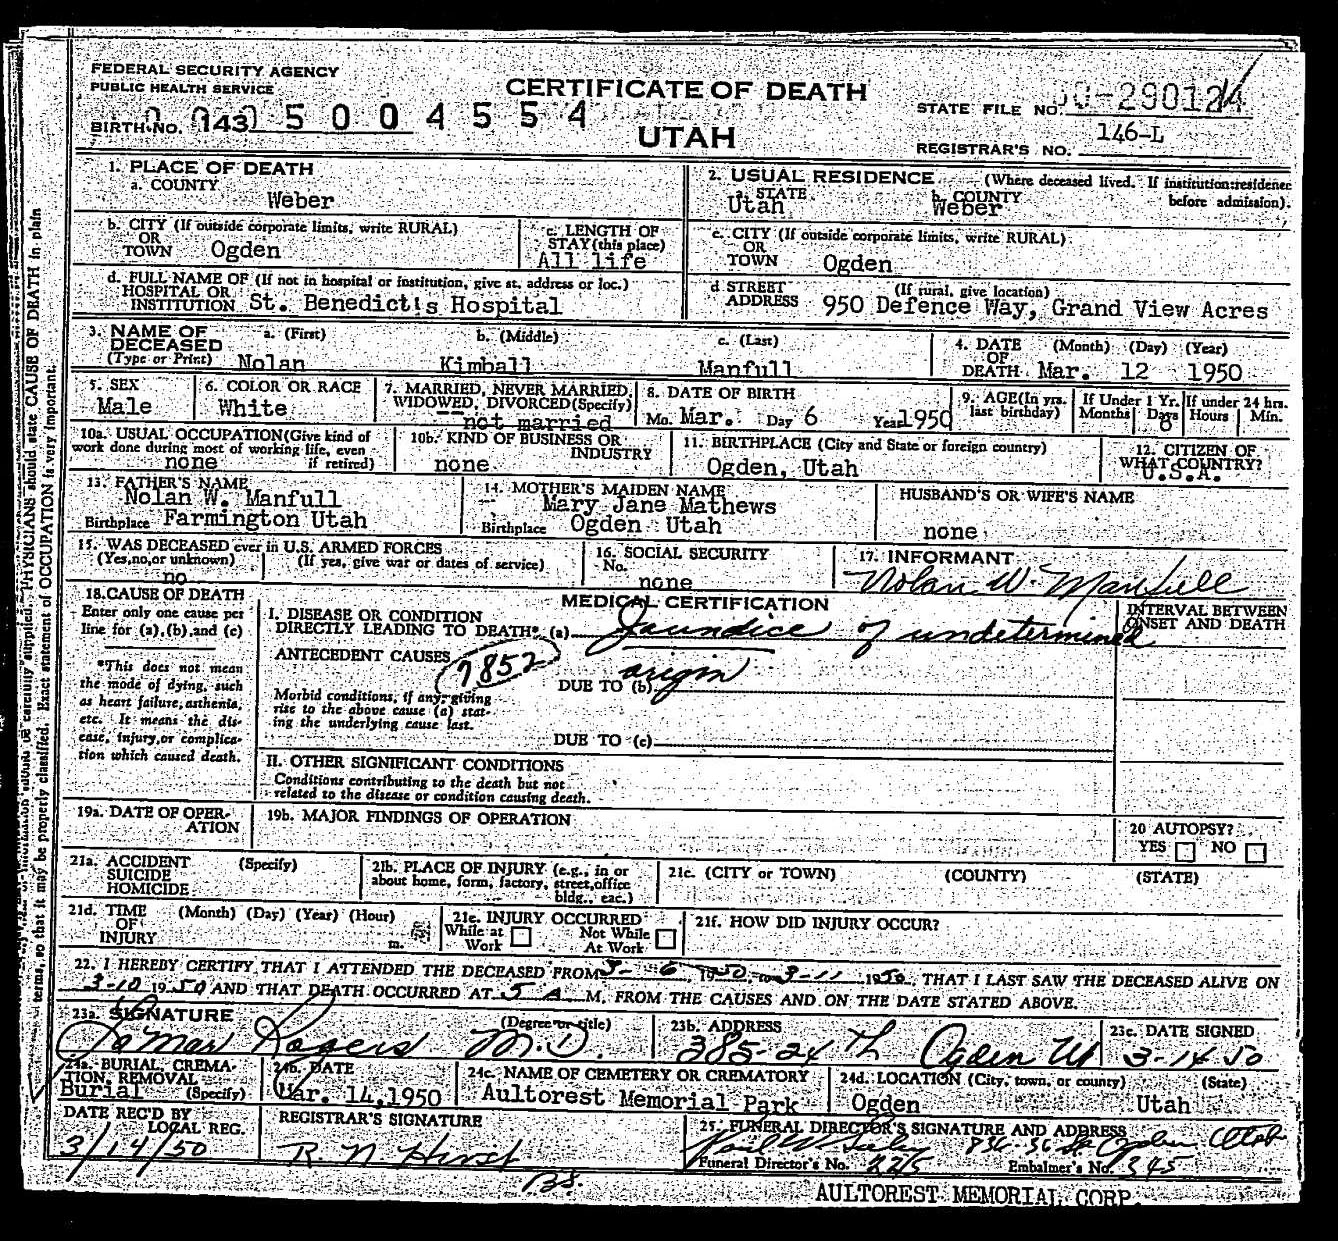 FEDERAL SECURITY AGENCY
PUBLIC HEALTH SERVICE
CERTIFICATE OF DEATH
UTAH
STATE FILE NO.
BIRTH NO. 143 5004554
REGISTRAR'S NO. 146-L
1. PLACE OF DEATH
a. COUNTY
Weber
2. USUAL RESIDENCE (Where deceased lived. If institution: residence before admission).
a. STATE
Utah
b. COUNTY
Weber
b. CITY (If outside corporate limits, write RURAL)
OR
TOWN Ogden
c. LENGTH OF
STAY (this place)
All life
c. CITY (If outside corporate limits, write RURAL)
OR
TOWN Ogden
d. FULL NAME OF (If not in hospital or institution, give st. address or loc.)
HOSPITAL OR
INSTITUTION St. Benedict's Hospital
d STREET (If rural, give location)
ADDRESS 950 Defence Way, Grand View Acres
3. NAME OF
DECEASED
(Type or Print)
a. (First)
Nolan
b. (Middle)
Kimball
c. (Last)
Manfull
4. DATE (Month) (Day) (Year)
OF
DEATH Mar. 12 1950
5. SEX
Male
6. COLOR OR RACE
White
7. MARRIED, NEVER MARRIED,
WIDOWED, DIVORCED (Specify)
not married
8. DATE OF BIRTH
Mo. Mar. Day 6 Year 1950
9. AGE (In yrs.
last birthday)
If Under 1 Yr.
Months Days
6
If under 24 hrs.
Hours Min.
10a. USUAL OCCUPATION (Give kind of
work done during most of working life, even
if retired)
none
10b. KIND OF BUSINESS OR
INDUSTRY
none
11. BIRTHPLACE (City and State or foreign country)
Ogden, Utah
12. CITIZEN OF
WHAT COUNTRY?
U.S.A.
13. FATHER'S NAME
Nolan W. Manfull
Birthplace Farmington Utah
14. MOTHER'S MAIDEN NAME
Mary Jane Mathews
Birthplace Ogden Utah
HUSBAND'S OR WIFE'S NAME
none
15. WAS DECEASED ever in U.S. ARMED FORCES
(Yes, no, or unknown) (If yes, give war or dates of service)
no
16. SOCIAL SECURITY
No.
none
17. INFORMANT
Nolan W. Manfull
18. CAUSE OF DEATH
Enter only one cause per
line for (a), (b), and (c)
*This does not mean
the mode of dying, such
as heart failure, asthenia,
etc. It means the dis-
ease, injury, or complica-
tion which caused death.
MEDICAL CERTIFICATION
I. DISEASE OR CONDITION
DIRECTLY LEADING TO DEATH* (a) Jaundice of undetermined
INTERVAL BETWEEN
ONSET AND DEATH
ANTECEDENT CAUSES 7852
DUE TO (b) origin
Morbid conditions, if any, giving
rise to the above cause (a) stat-
ing the underlying cause last.
DUE TO (c)
II. OTHER SIGNIFICANT CONDITIONS
Conditions contributing to the death but not
related to the disease or condition causing death.
19a. DATE OF OPER-
ATION
19b. MAJOR FINDINGS OF OPERATION
20 AUTOPSY?
YES NO
21a. ACCIDENT (Specify)
SUICIDE
HOMICIDE
21b. PLACE OF INJURY (e.g., in or
about home, form, factory, street, office
bldg., eac.)
21c. (CITY or TOWN) (COUNTY) (STATE)
21d. TIME (Month) (Day) (Year) (Hour)
OF
INJURY m.
21e. INJURY OCCURRED
While at Work
Not While At Work
21f. HOW DID INJURY OCCUR?
22. I HEREBY CERTIFY THAT I ATTENDED THE DECEASED FROM 3-6 1950, to 3-11 1950, THAT I LAST SAW THE DECEASED ALIVE ON
3-10 1950 AND THAT DEATH OCCURRED AT 5 A M, FROM THE CAUSES AND ON THE DATE STATED ABOVE.
23a. SIGNATURE (Degree or title)
LaMar Rogers M.D.
23b. ADDRESS
385-24 th Ogden Ut
23c. DATE SIGNED
3-14 50
24a. BURIAL, CREMA-
TION, REMOVAL
Burial (Specify)
24b. DATE
Mar. 14, 1950
24c. NAME OF CEMETERY OR CREMATORY
Aultorest Memorial Park
24d. LOCATION (City, town, or county) (State)
Ogden Utah
DATE REC'D BY
LOCAL REG.
3/14/50
REGISTRAR'S SIGNATURE
R N Hirst
25. FUNERAL DIRECTOR'S SIGNATURE AND ADDRESS
Ogden Utah
Funeral Director's No. 225 Embalmer's No. 345
AULTOREST MEMORIAL CORP.
PHYSICIANS should state CAUSE OF DEATH in plain
terms, so that it may be properly classified. Exact statement of OCCUPATION is very important.